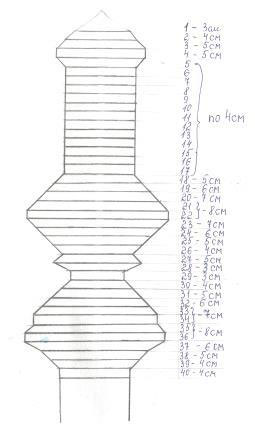 1 - 3см
2 - 4см
3 - 5см
4 - 5см
5
6
7
8
9
10
11 по 4см
12
13
14
15
16
17
18 - 5см
19 - 6см
20 - 7см
21
22 - 8см
23 - 7см
24 - 6см
25 - 5см
26 - 4см
27 - 5см
28 - 3см
29 - 3см
30 - 4см
31 - 5см
32 - 6см
33
34 - 7см
35
36 - 8см
37 - 6см
38 - 5см
39 - 4см
40 - 4см